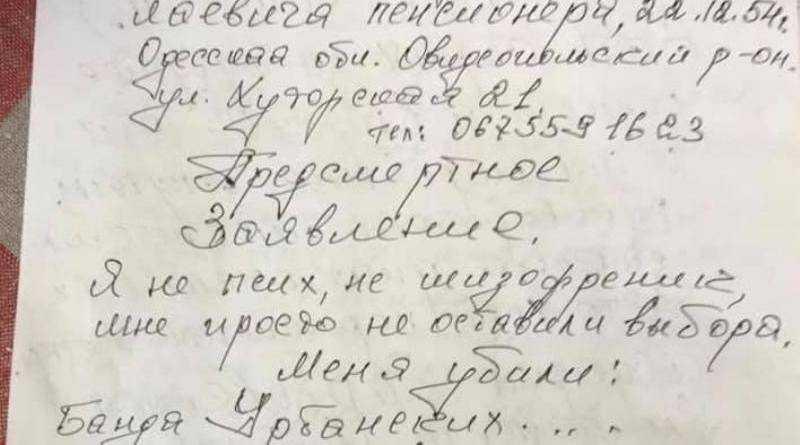 лаевича пенсионера, 22.12.54г.
Одесская обл. Овидеопольский р-он.
ул. Хуторская 21.
тел: 067 559 16 23
Предсмертное
Заявление.
Я не псих, не шизофреник,
мне просто не оставили выбора.
Меня убили:
Банда Урбанских....